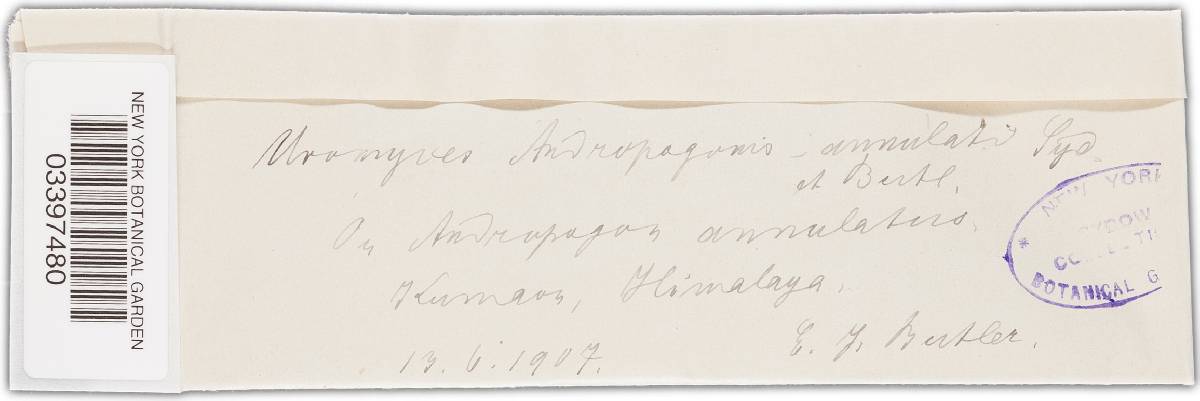 NEW YORK BOTANICAL GARDEN
03397480
Uromyces Andropogonis-annulati Syd.
et Butl.
On Andropogon annulatus.
Kumaon, Himalaya.
13.6.1907.
E. J. Butler.
NEW YORK
SYDOW
COLLECTI
BOTANICAL G